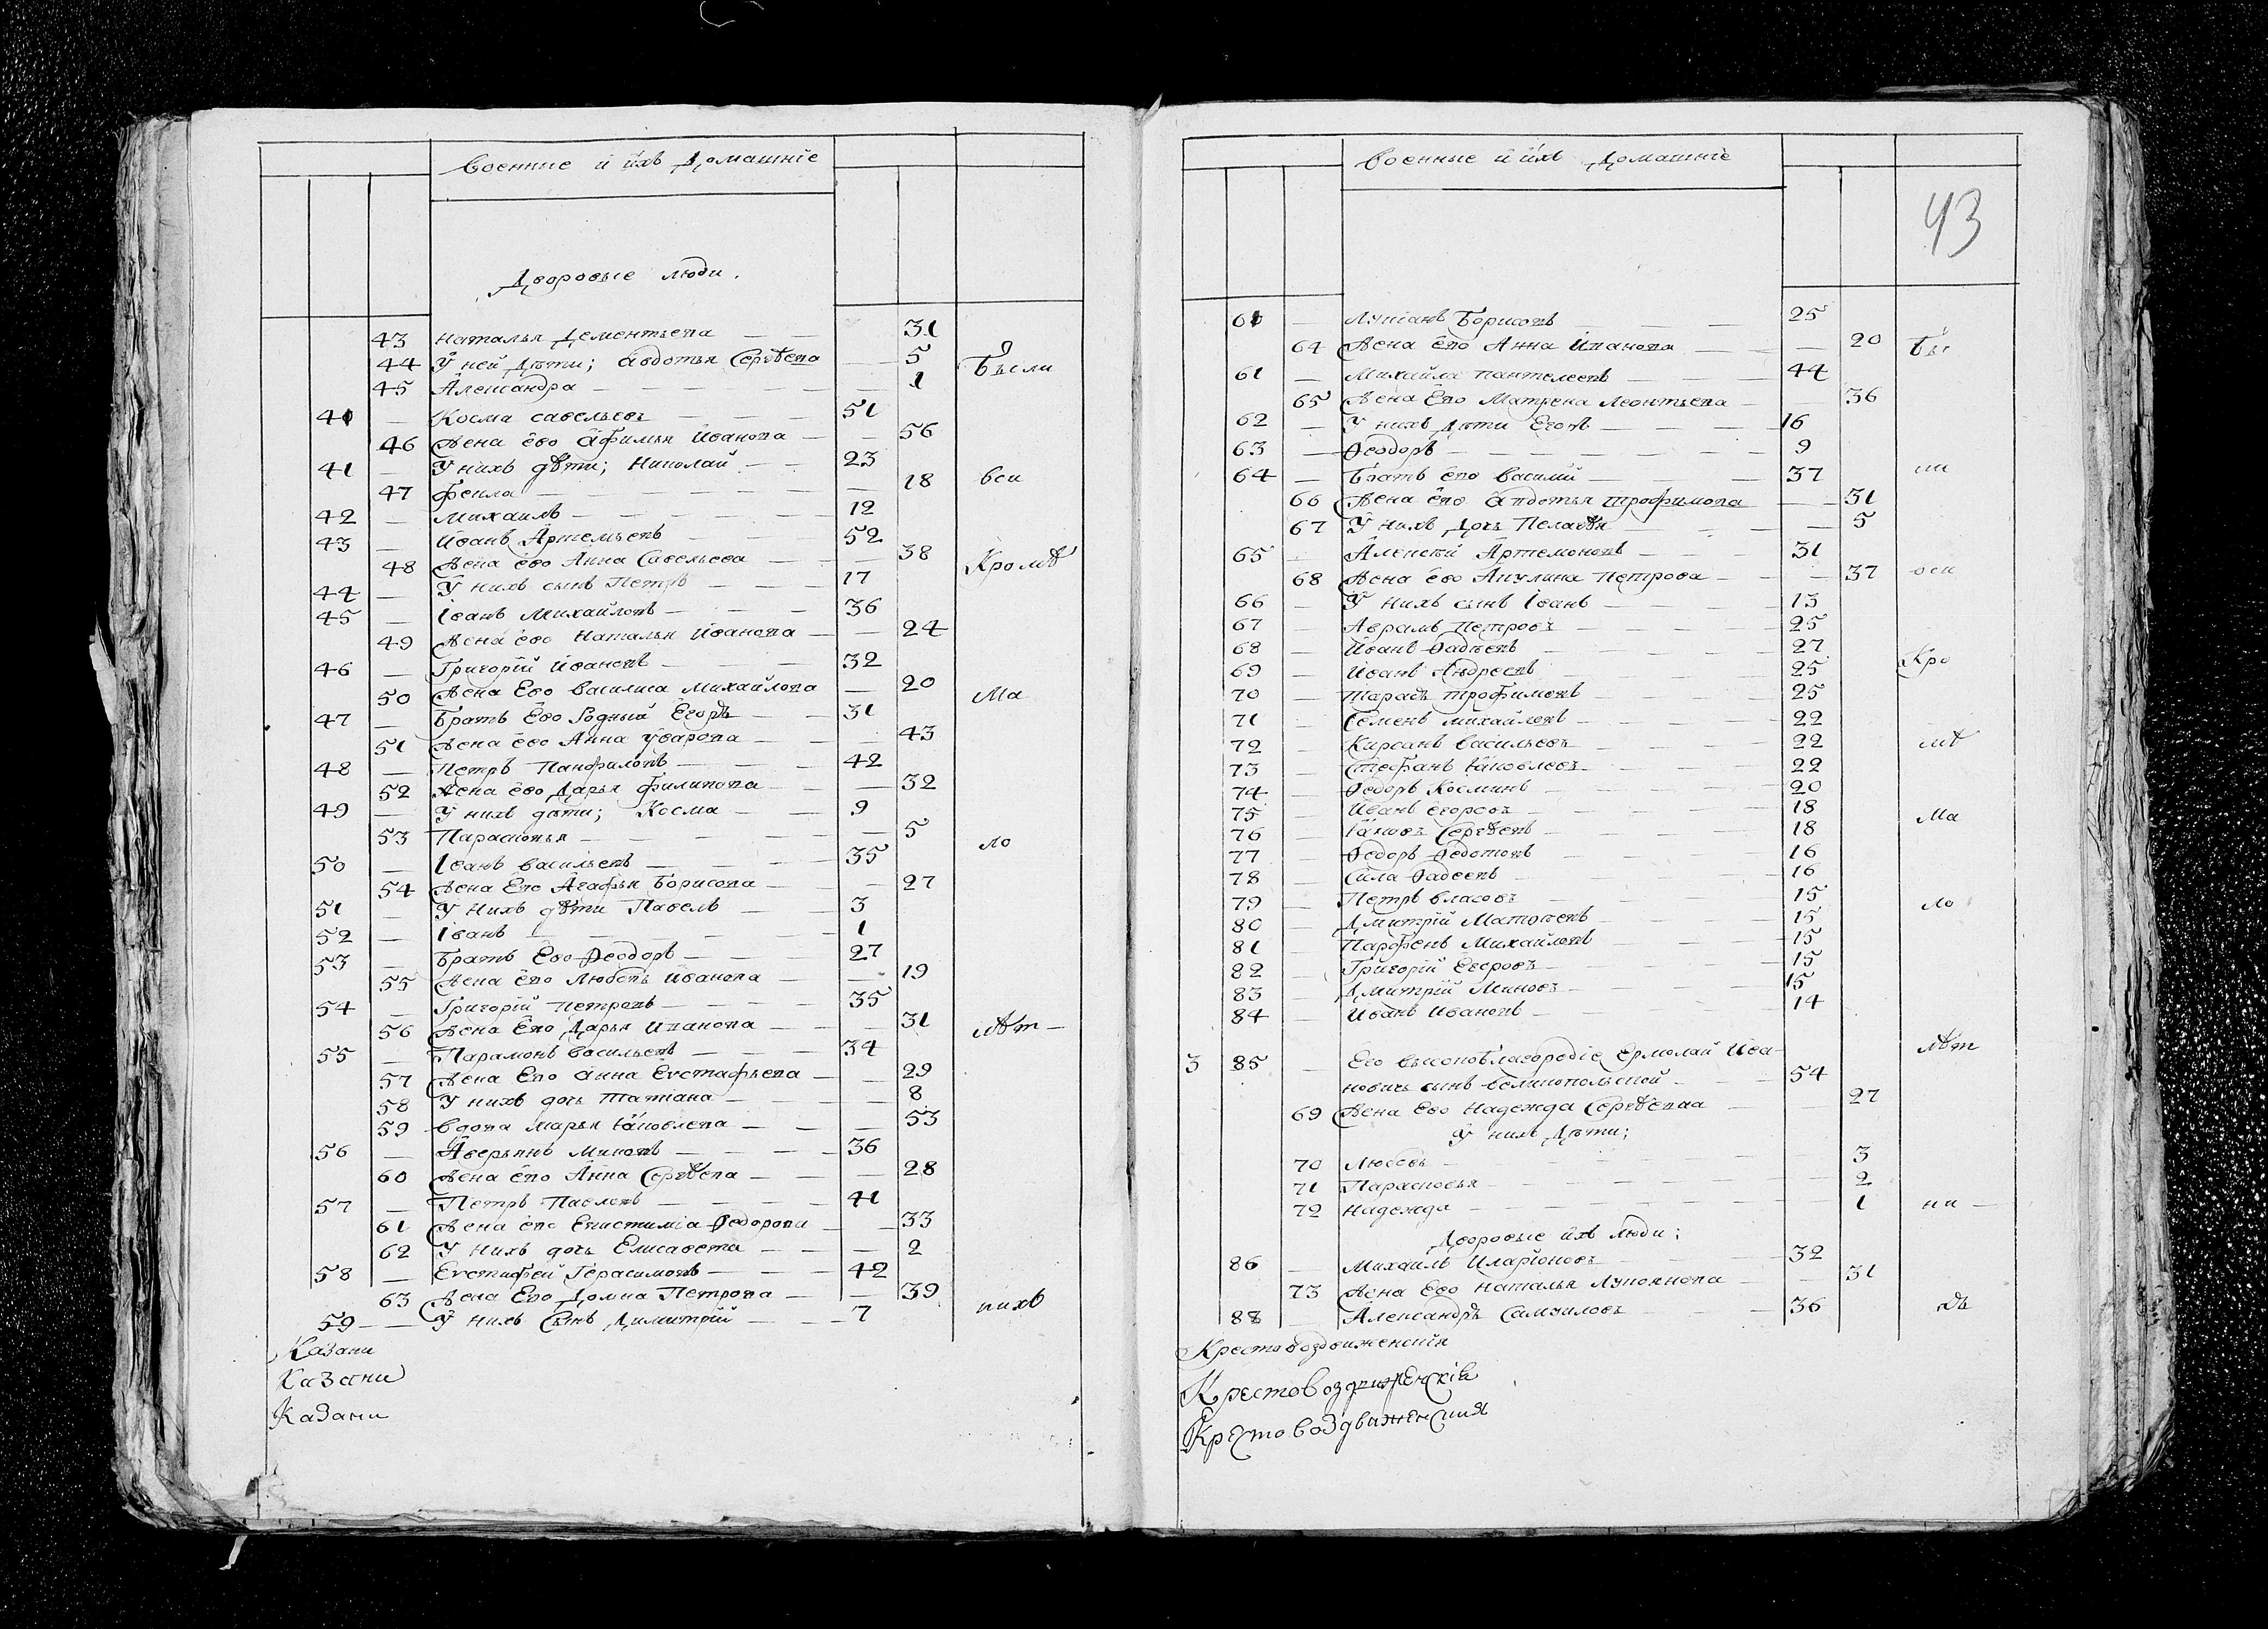 Военные и ихъ Домашніе
Дворовые люди.
43 Наталья Дементьева — 31
44 У ней дѣти; Авдотья Сергѣева — 5 Были
45 Александра — 1
40 — Косма Савельевъ — 51
46 Жена ево Афимья Иванова — 56
41 — У нихъ дѣти; Николай — 23
47 Фекла — 18 Вси
42 — Михаилъ — 12
43 — Иванъ Артемьевъ — 52
48 Жена ево Анна Савельева — 38 Кромѣ
44 — У нихъ сынъ Петръ — 17
45 — Іванъ Михайловъ — 36
49 Жена ево Наталья Иванова — 24
46 — Григорій Ивановъ — 32
50 Жена Ево Василиса Михайлова — 20 Ма
47 — Братъ Ево Родный Егоръ — 31
51 Жена ево Анна Уварова — 43
48 — Петръ Панфиловъ — 42
52 Жена ево Дарья Филипова — 32
49 — У нихъ дѣти; Косма — 9
53 Парасковья — 5 ло
50 — Іванъ Васильевъ — 35
54 Жена Ево Агафья Борисова — 27
51 — У Нихъ дѣти Павелъ — 3
52 — Іванъ — 1
53 — Братъ Ево Ѳеодоръ — 27
55 Жена ево Любовь Иванова — 19
54 — Григорій Петровъ — 35
56 Жена Ево Дарья Иванова — 31 лѣт —
55 — Парамонъ Васильевъ — 34
57 Жена Ево Анна Еvстафьева — 29
58 У нихъ дочь Татіана — 8
59 Вдова Марья Яковлева — 53
56 — Аверьянъ Миновъ — 36
60 Жена ево Анна Сергѣева — 28
57 — Петръ Павловъ — 41
61 Жена ево Епистиміа Ѳедорова — 33
62 У Нихъ дочь Елисавета — 2
58 — Еvстифей Герасимовъ — 42
63 Жена Ево Домна Петрова — 39
59 — У нихъ Сынъ Димитрій — 7 нихъ
Казани
Казани
Казани
Военные и ихъ Домашніе
43
60 — Лукіанъ Борисовъ — 25
64 Жена ево Анна Иванова — 20 Бы
61 — Михайла Пантелеевъ — 44
65 Жена Ево Матрена Леонтьева — 36
62 — У нихъ дѣти Егоръ — 16
63 — Ѳеодоръ — 9
64 — Братъ ево Василій — 37 ли
66 Жена ево Авдотья Трофимова — 31
67 У нихъ дочь Пелагѣя — 5
65 — Алексѣй Артемоновъ — 31
68 Жена ево Акулина Петрова — 37 вси
66 — У нихъ сынъ Іванъ — 13
67 — Аврамъ Петровъ — 25
68 — Иванъ Фадѣевъ — 27
69 — Иванъ Андреевъ — 25 Кро
70 — Тарасъ Трофимовъ — 25
71 — Семенъ Михайловъ — 22
72 — Кирсанъ Васильевъ — 22 мѣ
73 — Стефанъ Яковлевъ — 22
74 — Ѳедоръ Косминъ — 20
75 — Иванъ Егоровъ — 18
76 — Яковъ Сергѣевъ — 18 Ма
77 — Ѳедоръ Ѳедотовъ — 16
78 — Сила Фадеевъ — 16
79 — Петръ Власовъ — 15
80 — Дмитрій Матвѣевъ — 15 ло
81 — Парфенъ Михайловъ — 15
82 — Григорій Егоровъ — 15
83 — Дмитрій Миновъ — 15
84 — Иванъ Ивановъ — 14
3 85 — Его высокоблагородіе Ермолай Ива- лѣт
новичь сынъ Великопольской — 54
69 Жена Ево Надежда Сергѣевна — 27
У нихъ Дѣти;
70 Любовь — 3
71 Парасковья — 2
72 Надежда — 1 ни —
Дворовые ихъ люди;
86 — Михаилъ Иларіоновъ — 32
73 Жена Ево Наталья Лукоянова — 31
88 — Александръ Самуиловъ — 36
Крестовоздвиженскія
Крестовоздвиженскія
Крестовоздвиженския